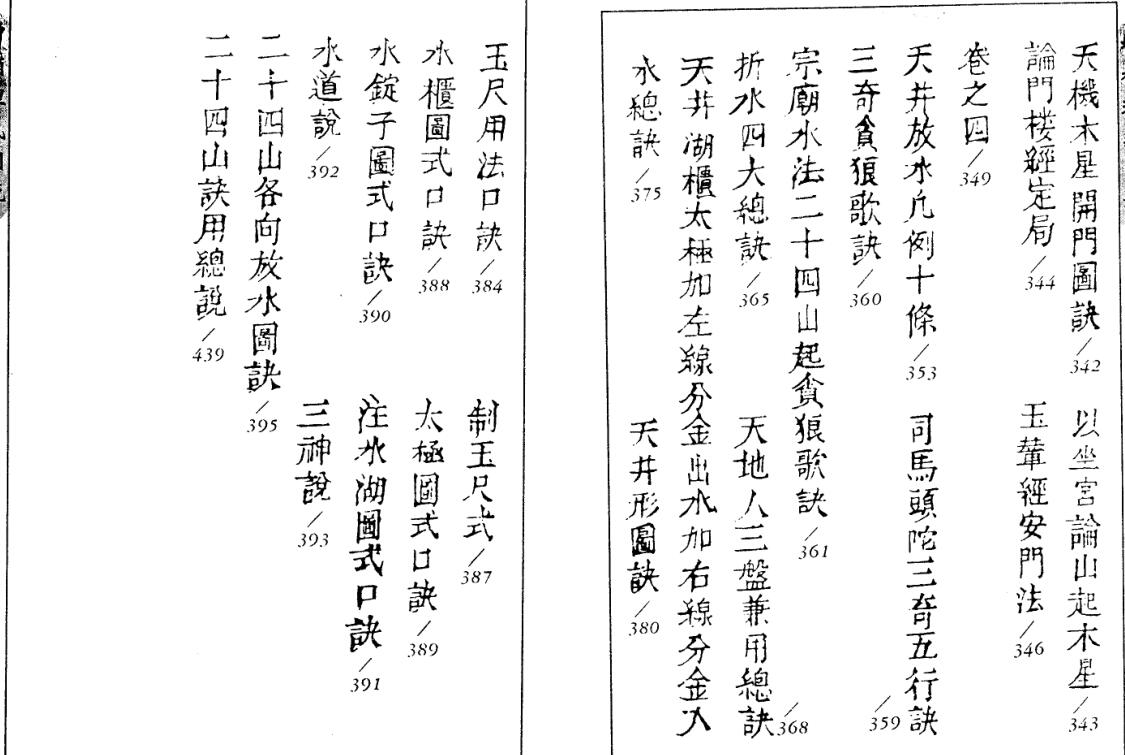 天機木星開門圖訣/342
以坐宮論山起木星/343
論門楼經定局/344
玉輦經安門法/346
卷之四/349
天井放水凡例十條/353
司馬頭陀三奇五行訣/359
三奇貪狼歌訣/360
宗廟水法二十四山起貪狼歌訣/361
折水四大總訣/365
天地人三盤兼用總訣/368
天井湖櫃太極加左線分金出水加右線分金入
水總訣/375
天井形圖訣/380
玉尺用法口訣/384
制玉尺式/387
水櫃圖式口訣/388
太極圖式口訣/389
水錠子圖式口訣/390
注水湖圖式口訣/391
水道說/392
三神說/393
二十四山各向放水圖訣/395
二十四山訣用總說/439